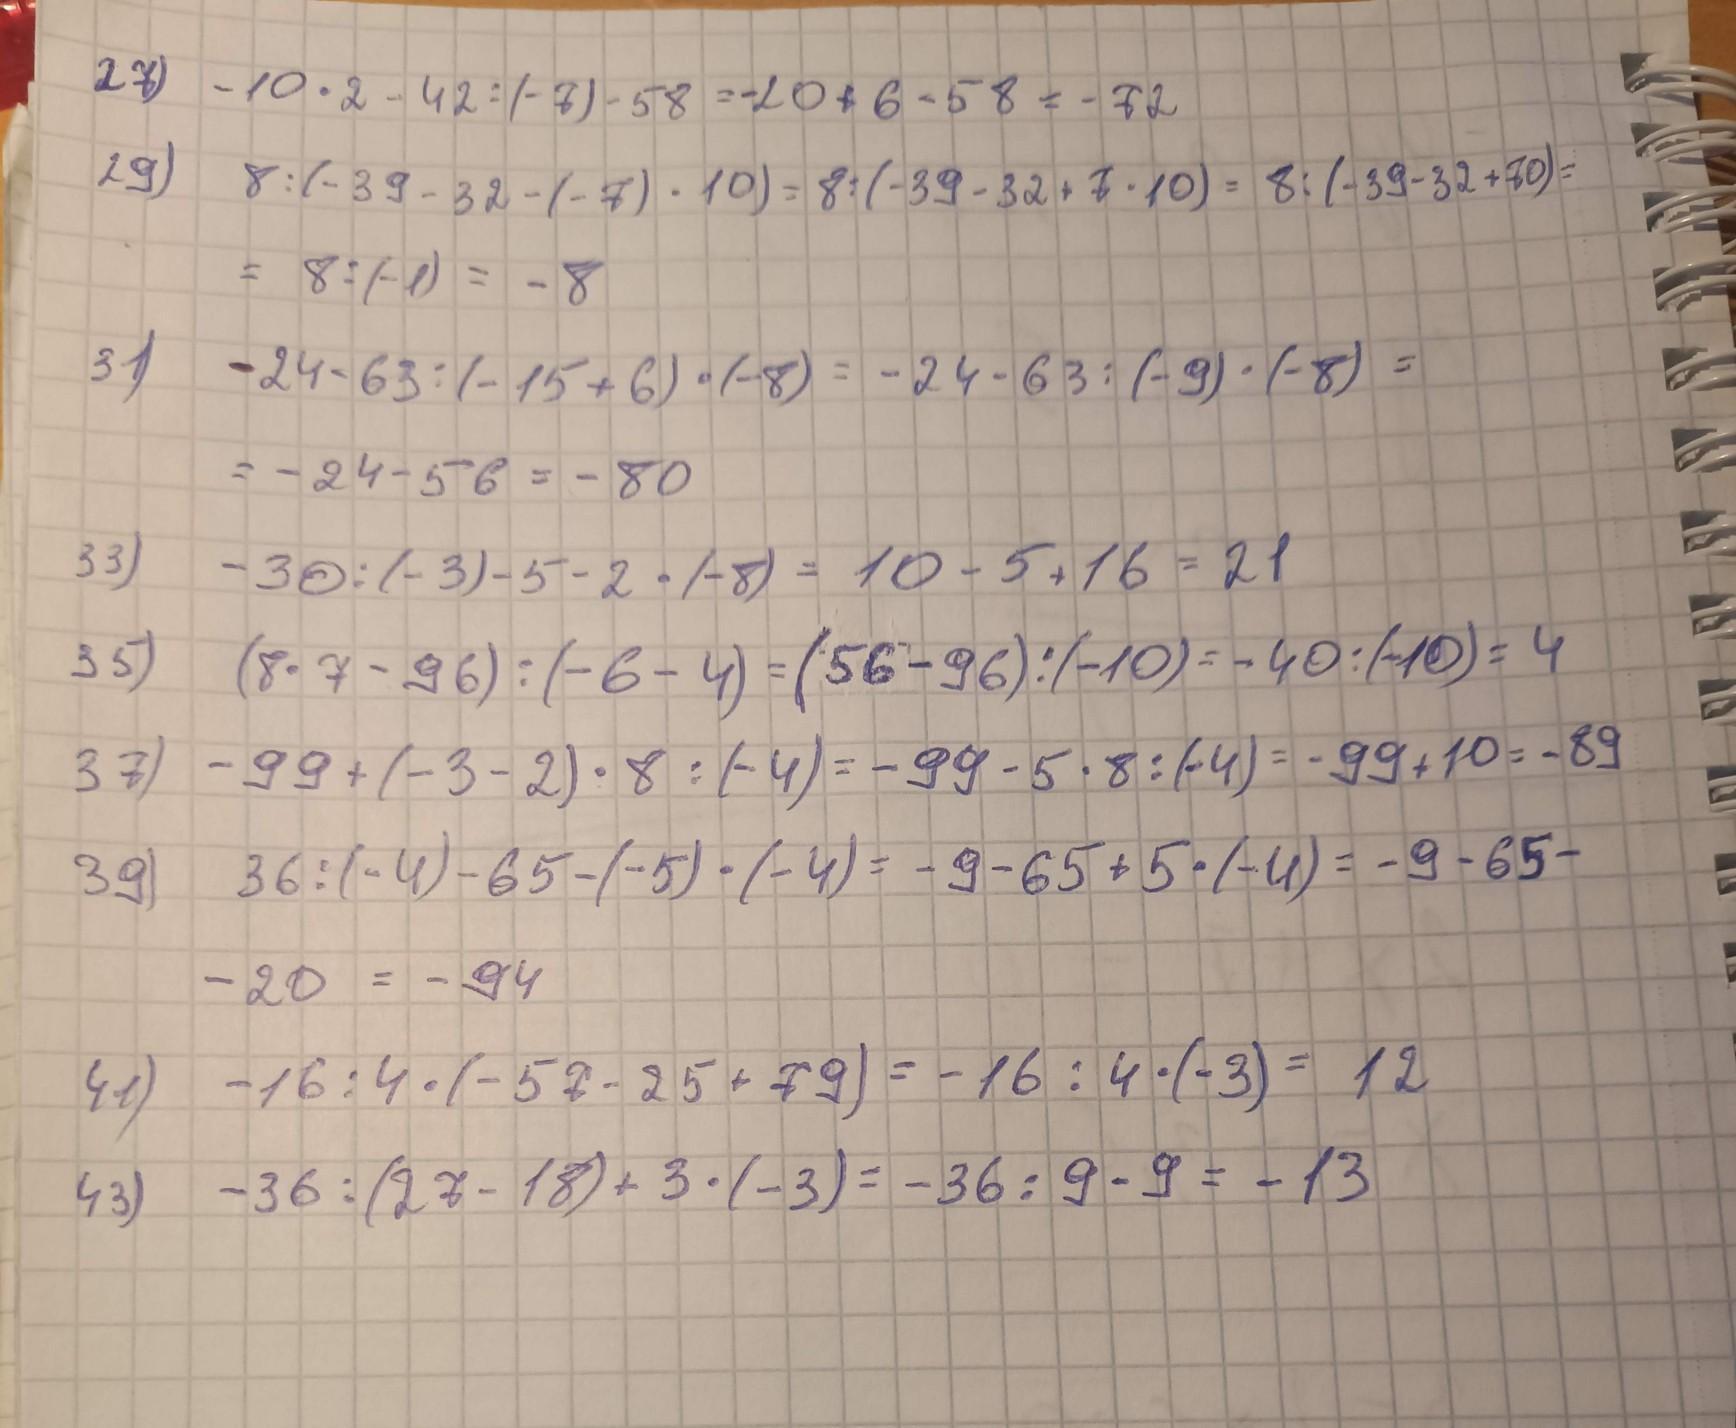 27) -10·2-42:(-7)-58=-20+6-58=-72
29) 8:(-39-32-(-7)·10)=8:(-39-32+7·10)=8:(-39-32+70)=
=8:(-1)=-8
31) -24-63:(-15+6)·(-8)=-24-63:(-9)·(-8)=
=-24-56=-80
33) -30:(-3)-5-2·(-8)=10-5+16=21
35) (8·7-96):(-6-4)=(56-96):(-10)=-40:(-10)=4
37) -99+(-3-2)·8:(-4)=-99-5·8:(-4)=-99+10=-89
39) 36:(-4)-65-(-5)·(-4)=-9-65+5·(-4)=-9-65-
-20=-94
41) -16:4·(-57-25+79)=-16:4·(-3)=12
43) -36:(27-18)+3·(-3)=-36:9-9=-13